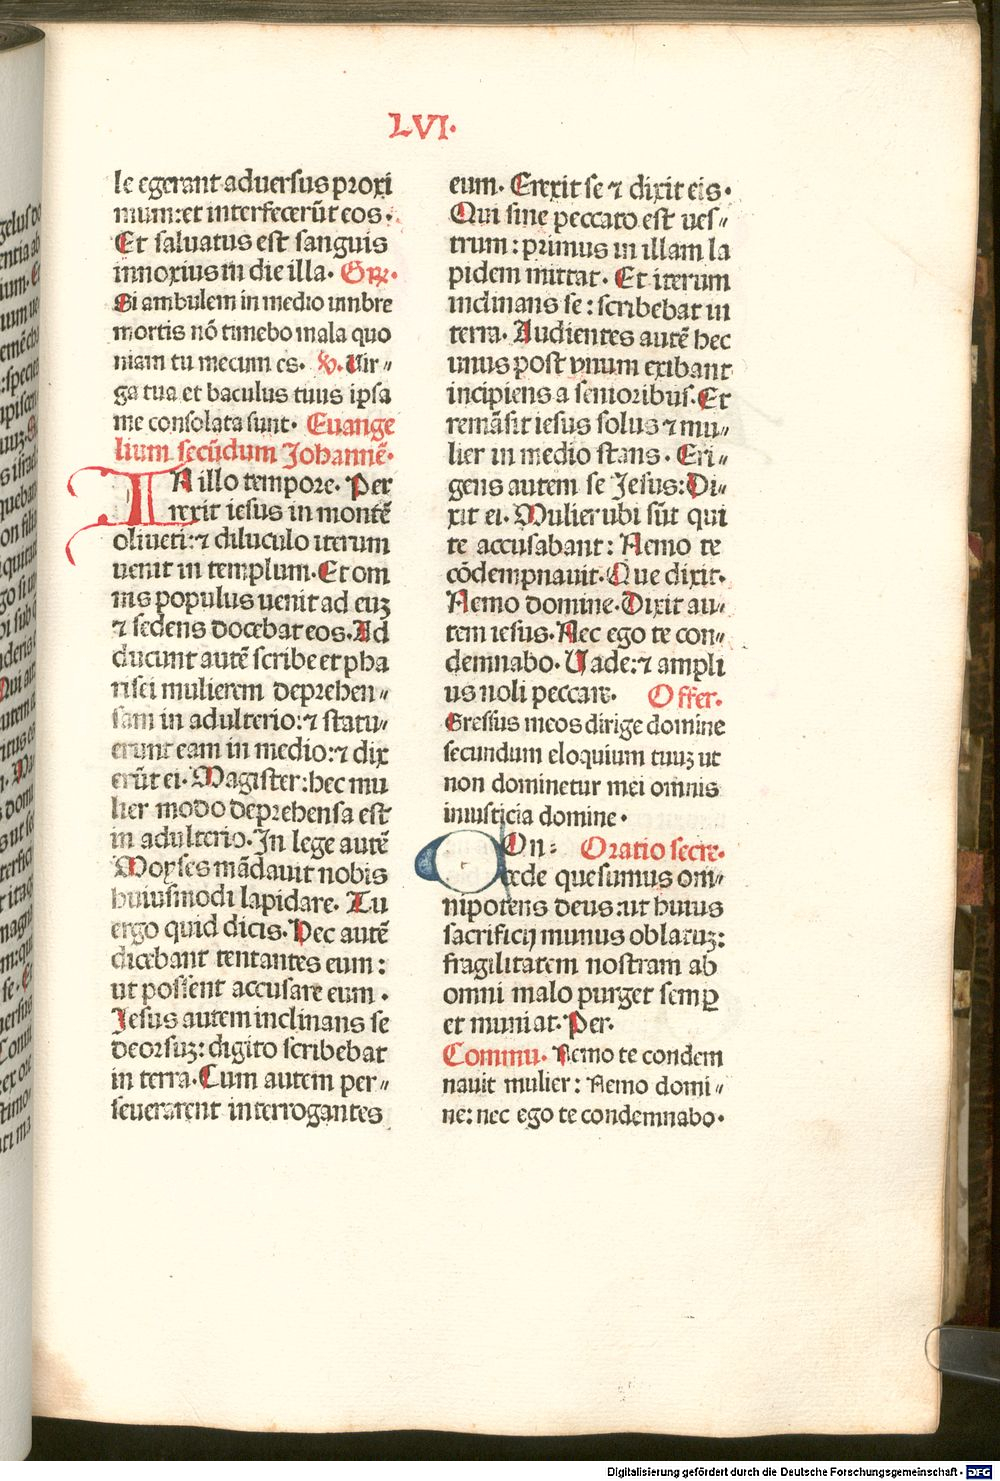 LVI.
le egerant aduersus proxi
mum:et interfecerūt eos.
Et saluatus est sanguis
innoxius in die illa. Grͣ.
Si ambulem in medio vmbre
mortis nō timebo mala quo
niam tu mecum es. v̄. Uir〃
ga tua et baculus tuus ipsa
me consolata sunt. Euange
lium secūdum Johannē.
IN illo tempore. Per
rexit iesus in montē
oliueti:⁊ diluculo iterum
uenit in templum. Et om
nis populus uenit ad euꝫ
⁊ sedens docebat eos. Ad
ducunt autē scribe et pha
risei mulierem deprehen〃
sam in adulterio:⁊ statu〃
erunt eam in medio:⁊ dix
erūt ei. Magister:hec mu
lier modo deprehensa est
in adulterio. In lege autē
Moyses mādauit nobis
huiusmodi lapidare. Tu
ergo quid dicis. Hec autē
dicebant tentantes eum:
ut possent accusare eum.
Jesus autem inclinans se
deorsuꝫ: digito scribebat
in terra. Cum autem per〃
seuerarent interrogantes
eum. Erexit se ⁊ dixit eis.
Qui sine peccato est ues〃
trum: primus in illam la
pidem mittat. Et iterum
inclinans se: scribebat in
terra. Audientes autē hec
unus post vnum exibant
incipiens a senioribus. Et
remāsit iesus solus ⁊ mu〃
lier in medio stans. Eri〃
gens autem se Jesus: Di〃
xit ei. Mulier ubi sūt qui
te accusabant: Nemo te
cōdempnauit. Que dixit.
Nemo domine. Dixit au〃
tem iesus. Nec ego te con〃
demnabo. Uade:⁊ ampli
us noli peccare. Offer.
Gressus meos dirige domine
secundum eloquium tuuꝫ ut
non dominetur mei omnis
iniusticia domine.
Con: Oratio secre.
cede quesumus om〃
nipotens deus:ut huius
sacrificij munus oblatuꝫ:
fragilitatem nostram ab
omni malo purget semꝑ
et muniat. Per.
Commu. Nemo te condem
nauit mulier: Nemo domi〃
ne: nec ego te condemnabo.
Digitalisierung gefördert durch die Deutsche Forschungsgemeinschaft - DFG